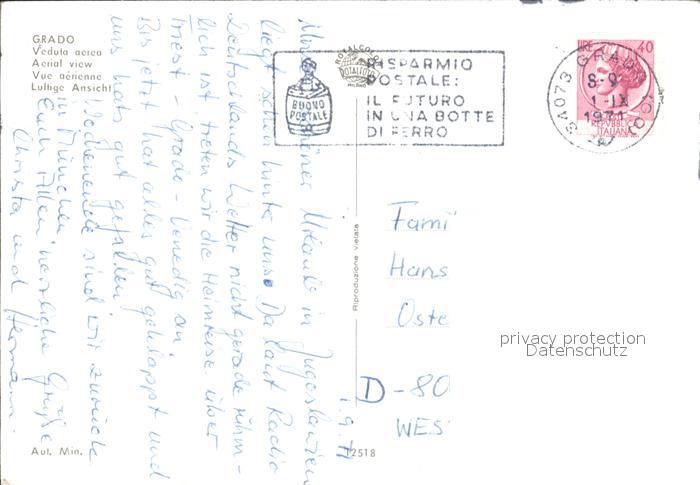 GRADO
Veduta aerea
Aerial view
Vue aérienne
Luftige Ansicht
ROTALCOLOR
ROTALFOTO
MILANO
BUONO
POSTALE
RISPARMIO
POSTALE:
IL FUTURO
IN UNA BOTTE
DI FERRO
34073 GRADO
8-9
1-IX
1971
LIRE 40
REPUBBLICA
ITALIANA
1.9.71
Urlaub in Jugoslavien
liegt schon hinter uns. Da laut Radio
Deutschlands Wetter nicht gerade rühm-
lich ist treten wir die Heimreise über
Triest - Grado - Venedig an.
Bis jetzt hat alles gut geklappt und
uns hats gut gefallen.
Wochenende sind wir zurück
in München.
Euch Allen herzliche Grüße
Christa und Hermann.
Riproduzione vietata
Fami
Hans
Oste
D-80
WES
privacy protection
Datenschutz
Aut. Min.
2518